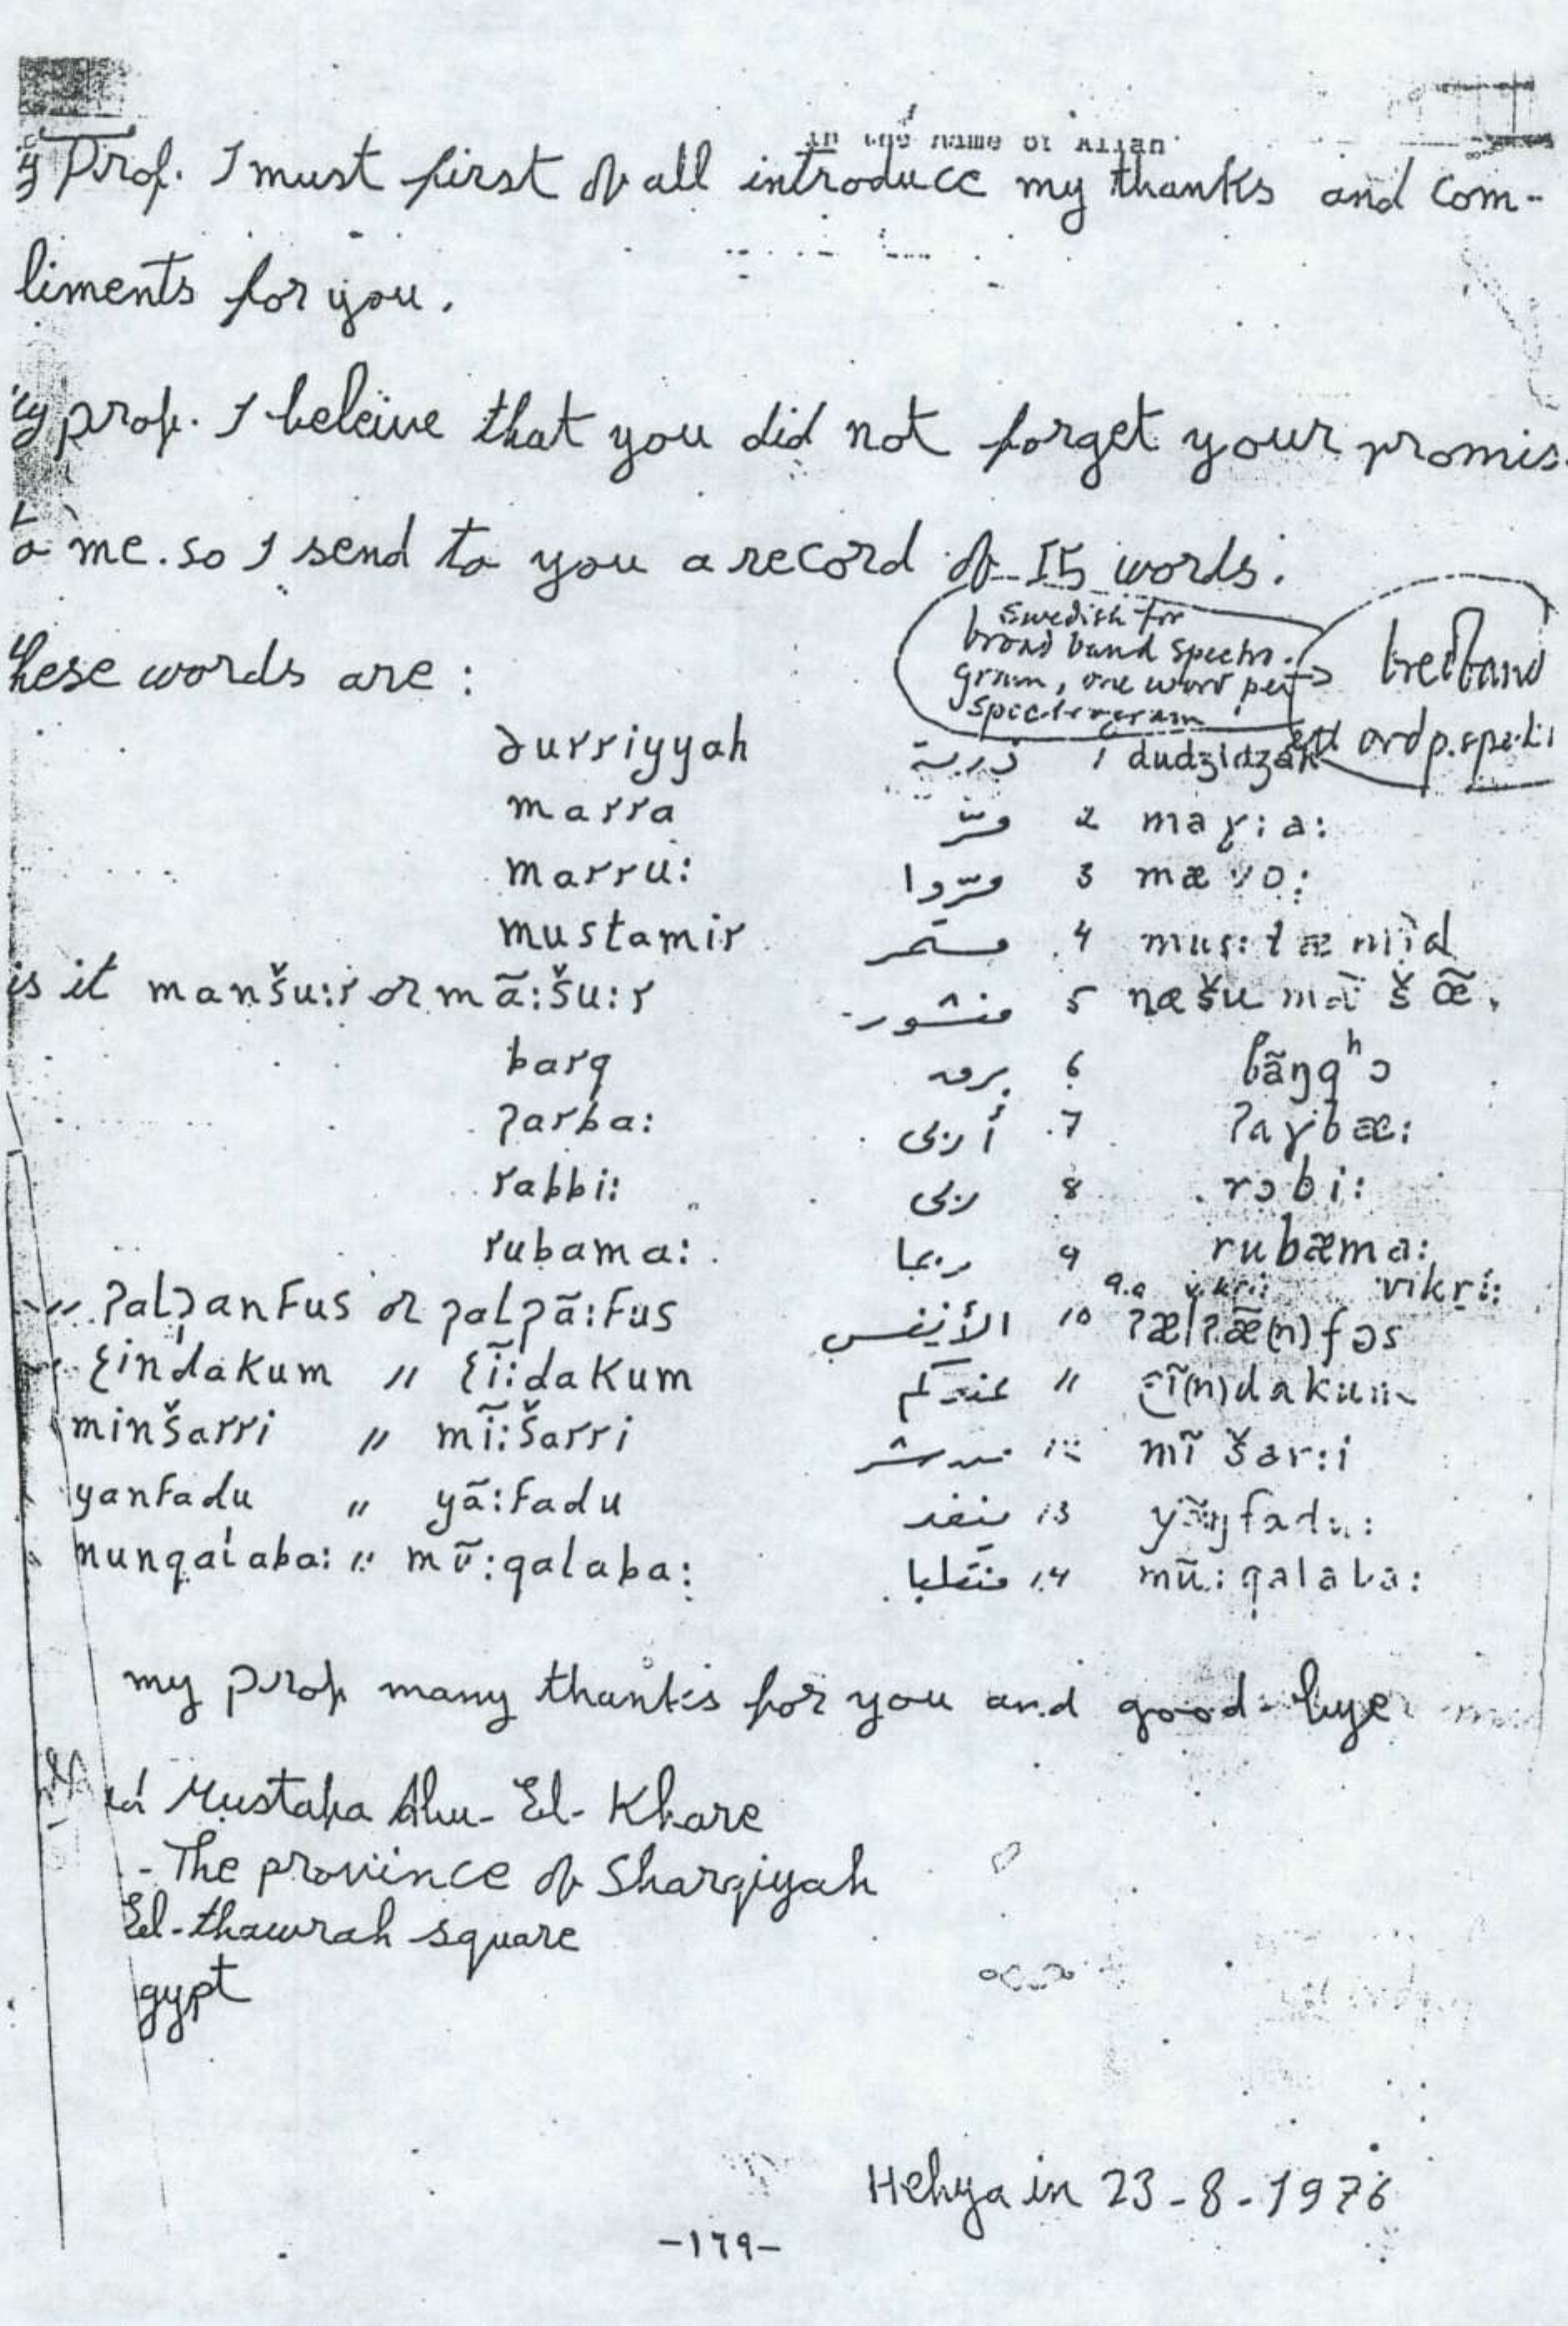 in the name of Allah
Prof. I must first of all introduce my thanks and com-
liments for you.
prof. I beleive that you did not forget your promis
to me. so I send to you a record of 15 words.
hese words are :
Swedish for
broad band spectro-
gram, one word per
spectrogram
bredband
ett ord p. spektr
ðurriyyah ذرية 1 dudzidzah
marra مرّ 2 maɣ:a:
marru: مرّوا 3
mustamir مستمر 4 mus:tæmid
is it manšu:r or mã:šu:r منشور 5 næšu mã šœ̃
barq برق 6 bãŋqʰɔ
ʔarba: أربى 7 ʔaɣbæ:
rabbi: ربى 8 rɔbi:
rubama: ربما 9 rubæma:
9.a vikri: vikri:
" ʔalʔanfus or ʔalʔã:fus الأنفس 10 ʔælʔæ̃(n)fɔs
" ʕindakum " ʕĩ:dakum عندكم 11 ʕĩ(n)dakum
minšarri " mĩ:šarri من شر 12 mĩ šar:i
yanfadu " yã:fadu ينفد 13
munqalaba: " mũ:qalaba: منقلبا 14 mũ:qalaba:
my prof many thanks for you and good-bye
Mustafa Abu-El-Khare
- The province of Sharqiyah
El-thawrah square
gypt
Hehya in 23-8-1976
-179-